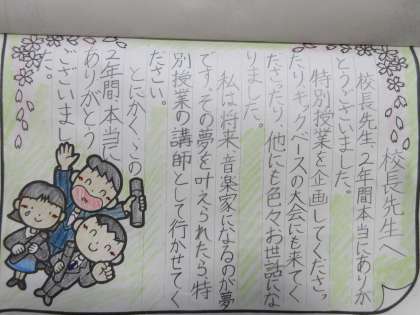 校長先生へ
校長先生、2年間本当にありが
とうございました。
特別授業を企画してくださっ
たり、キックベースの大会にも来てく
ださったり、他にも色々お世話にな
りました。
私は将来、音楽家になるのが夢
です。その夢を叶えられたら、特
別授業の講師として行かせてく
ださい。
とにかく、この
2年間、本当に
ありがとう
ございまし
た。